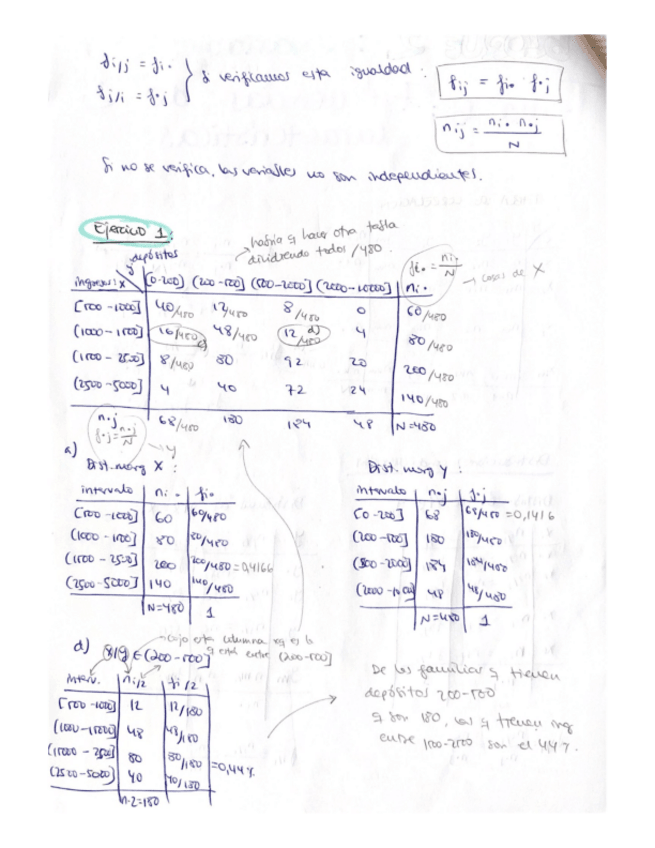 fi/j = fi•
fj/i = f•j
Si verificamos esta igualdad :
fij = fi• f•j
nij = ni• n•j / N
Si no se verifica, las variables no son independientes.
Ejercicio 1:
habría q hacer otra tabla
dividiendo todos /480.
y depósitos
fi• = ni• / N → cosas de X
ingresos X [0-200] (200-500] (500-2000] (2000-10000] ni•
[500-1000] 40/480 12/480 8/480 0 60/480
(1000-1500] 16/480 48/480 12/480 d) 4 80/480
(1500-2500] 8/480 80 92 20 200/480
(2500-5000] 4 40 72 24 140/480
n•j 68/480 180 184 48 N=480
f•j = n•j / N → y
a)
Dist. marg X :
intervalo ni• fi•
[500-1000] 60 60/480
(1000-1500] 80 80/480
(1500-2500] 200 200/480 = 0,4166
(2500-5000] 140 140/480
N=480 1
Dist. marg Y :
intervalo n•j f•j
[0-200] 68 68/480 = 0,1416
(200-500] 180 180/480
(500-2000] 184 184/480
(2000-10000] 48 48/480
N=480 1
→ cojo esta columna xq es la
q está entre (200-500]
d) x/y ∈ (200-500]
Interv. ni/2 fi/2
[500-1000] 12 12/180
(1000-1500] 48 48/180
(1500-2500] 80 80/180 = 0,44%
(2500-5000] 40 40/180
n•2=180
De las familias q tienen
depósitos 200-500
q son 180, las q tienen ing
entre 1500-2500 son el 44%.